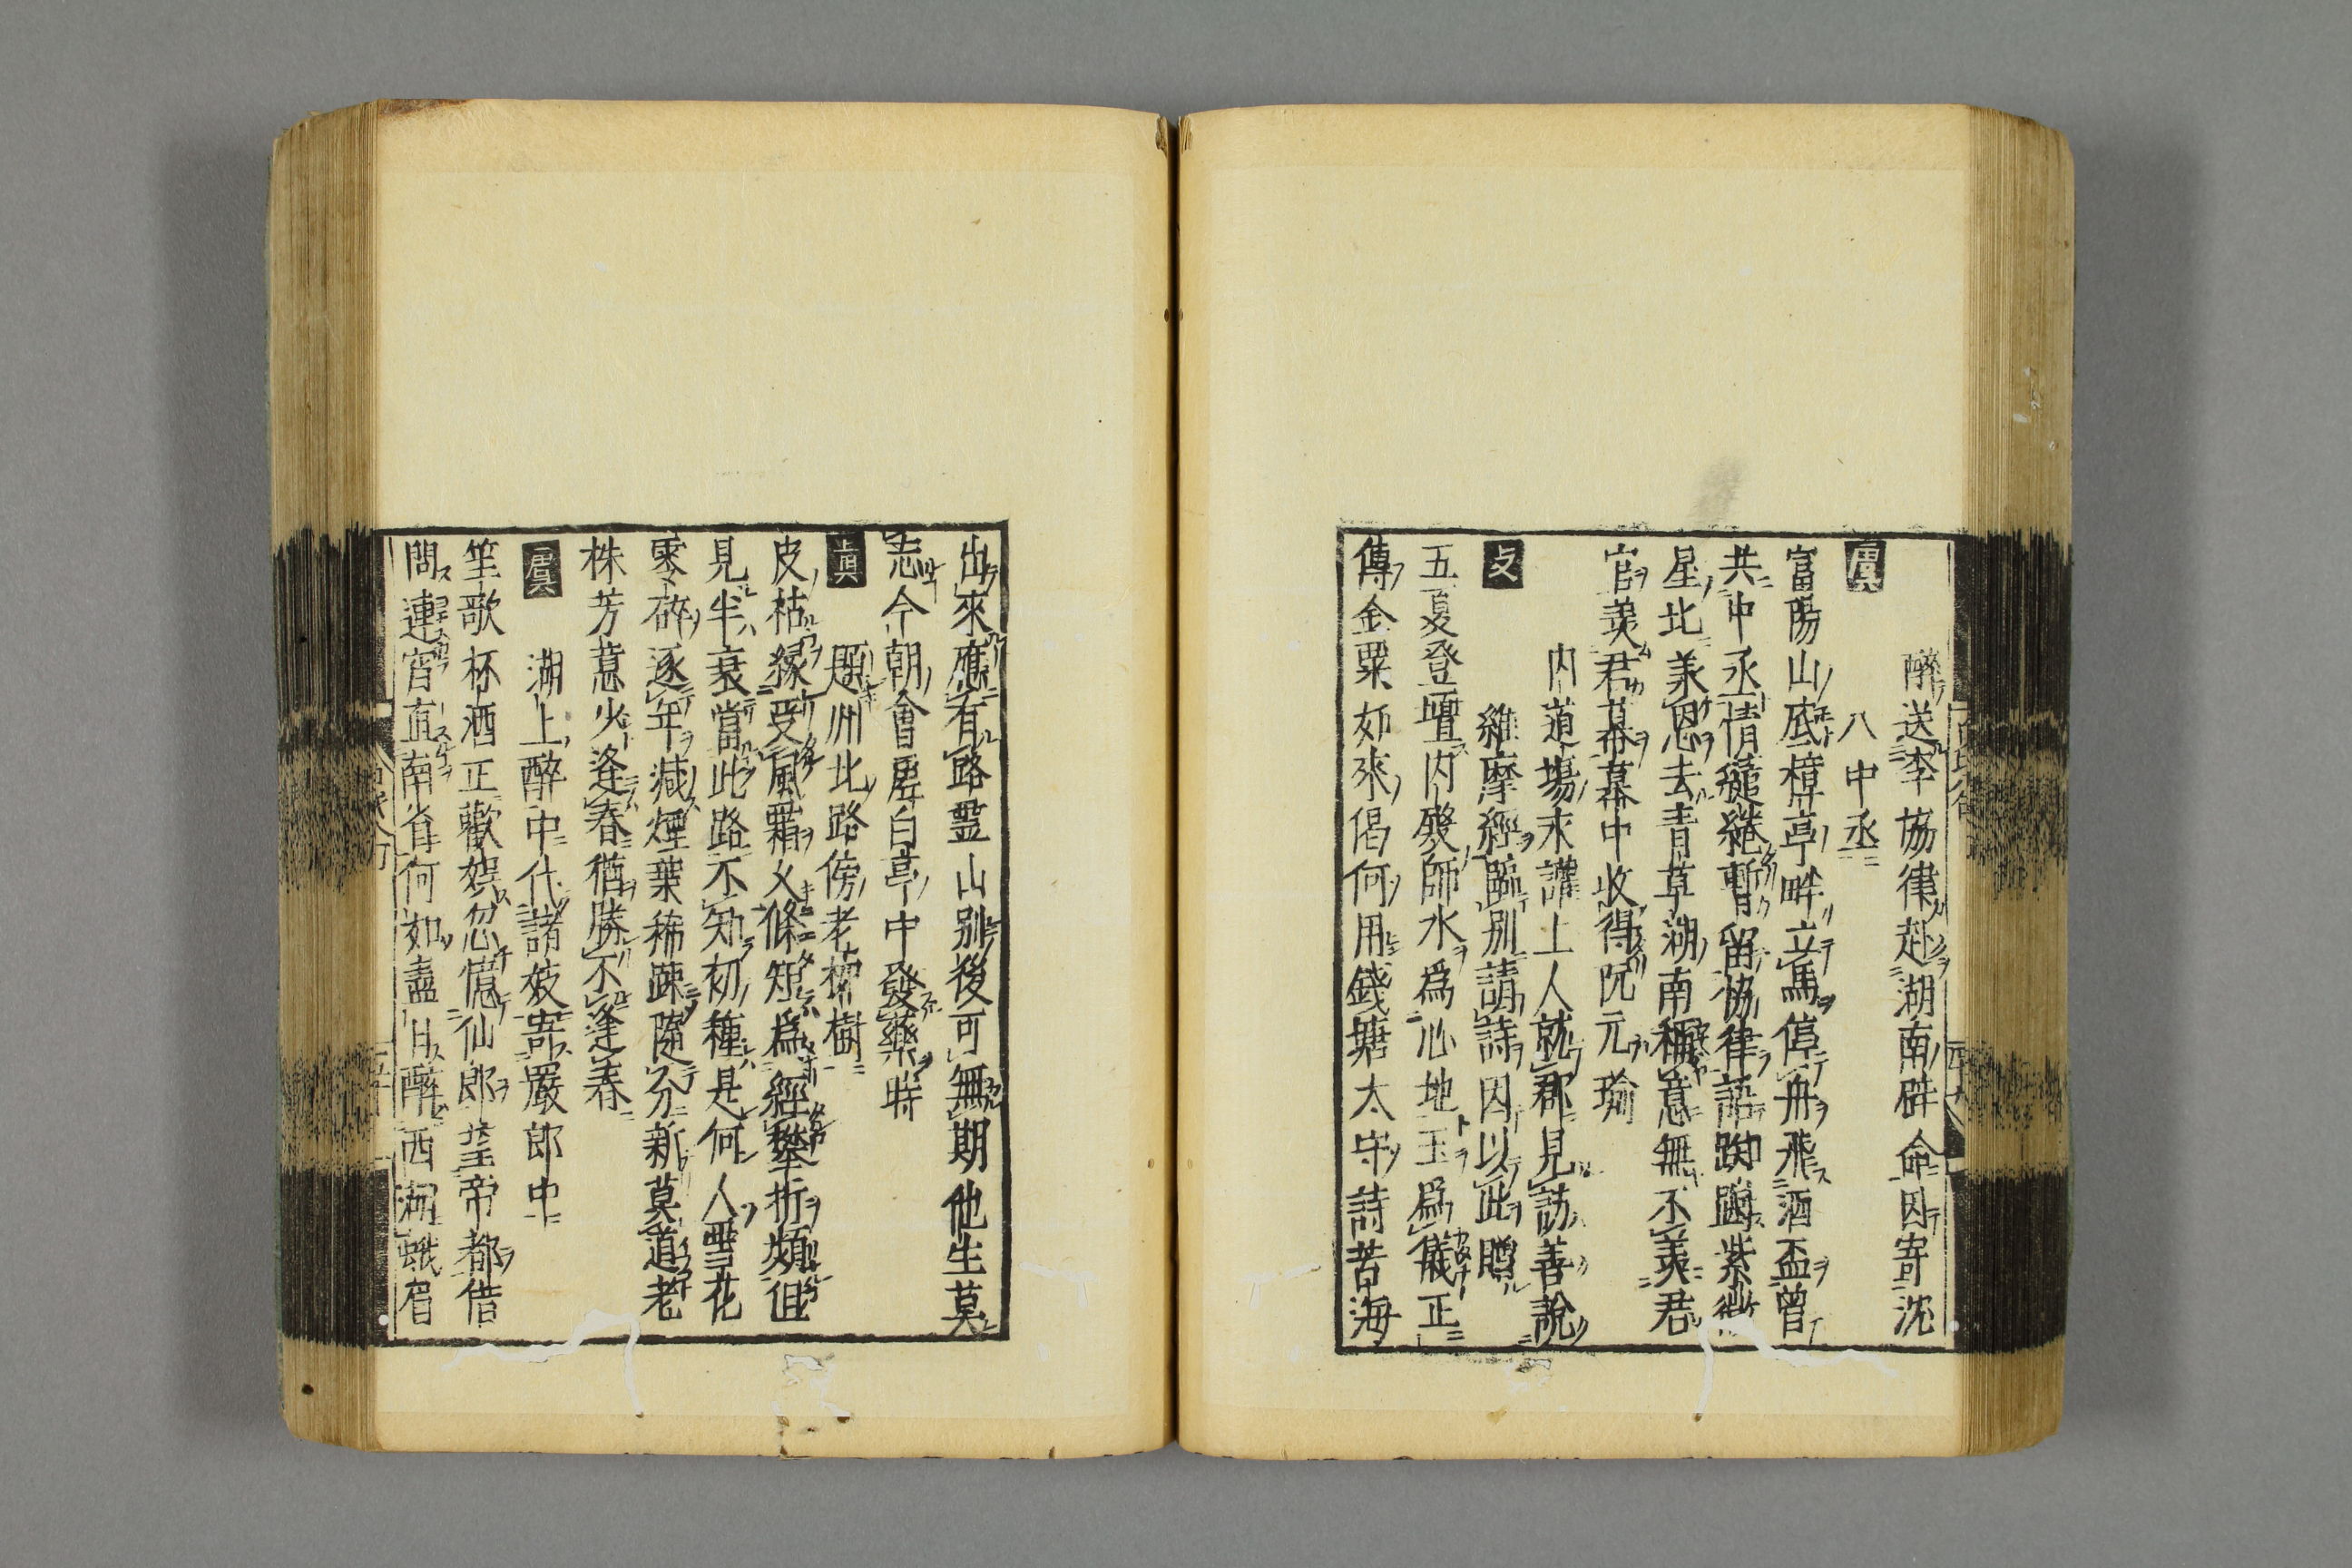 醉送李協律赴湖南辟命因寄沈
八中丞
虞
富陽山底樟亭畔立馬停舟飛酒盃曽
共中丞情繾綣暫留協律語踟躕紫微
星北承恩去青草湖南稱意無不羨君
官羨君幕幕中收得阮元瑜
内道場永讙上人就郡見訪善說
維摩經臨別請詩因以此贈
支
五夏登壇内殿師水爲心地玉爲儀正
傳金粟如來偈何用錢塘太守詩苦海
出來應有路霊山別後可無期他生莫
忘今朝會虚白亭中發藥時
題州北路傍老柳樹
眞
皮枯緣受風霜久條短爲經攀折頻但
見半衰當此路不知初種是何人雪花
零碎逐年減煙葉稀疎隨分新莫道老
株芳意少逢春猶勝不逢春
湖上醉中代諸妓寄嚴郎中
虞
笙歌杯酒正歡娯忽憶仙郎望帝都借
問連宵直南省何如盡日醉西湖蛾眉